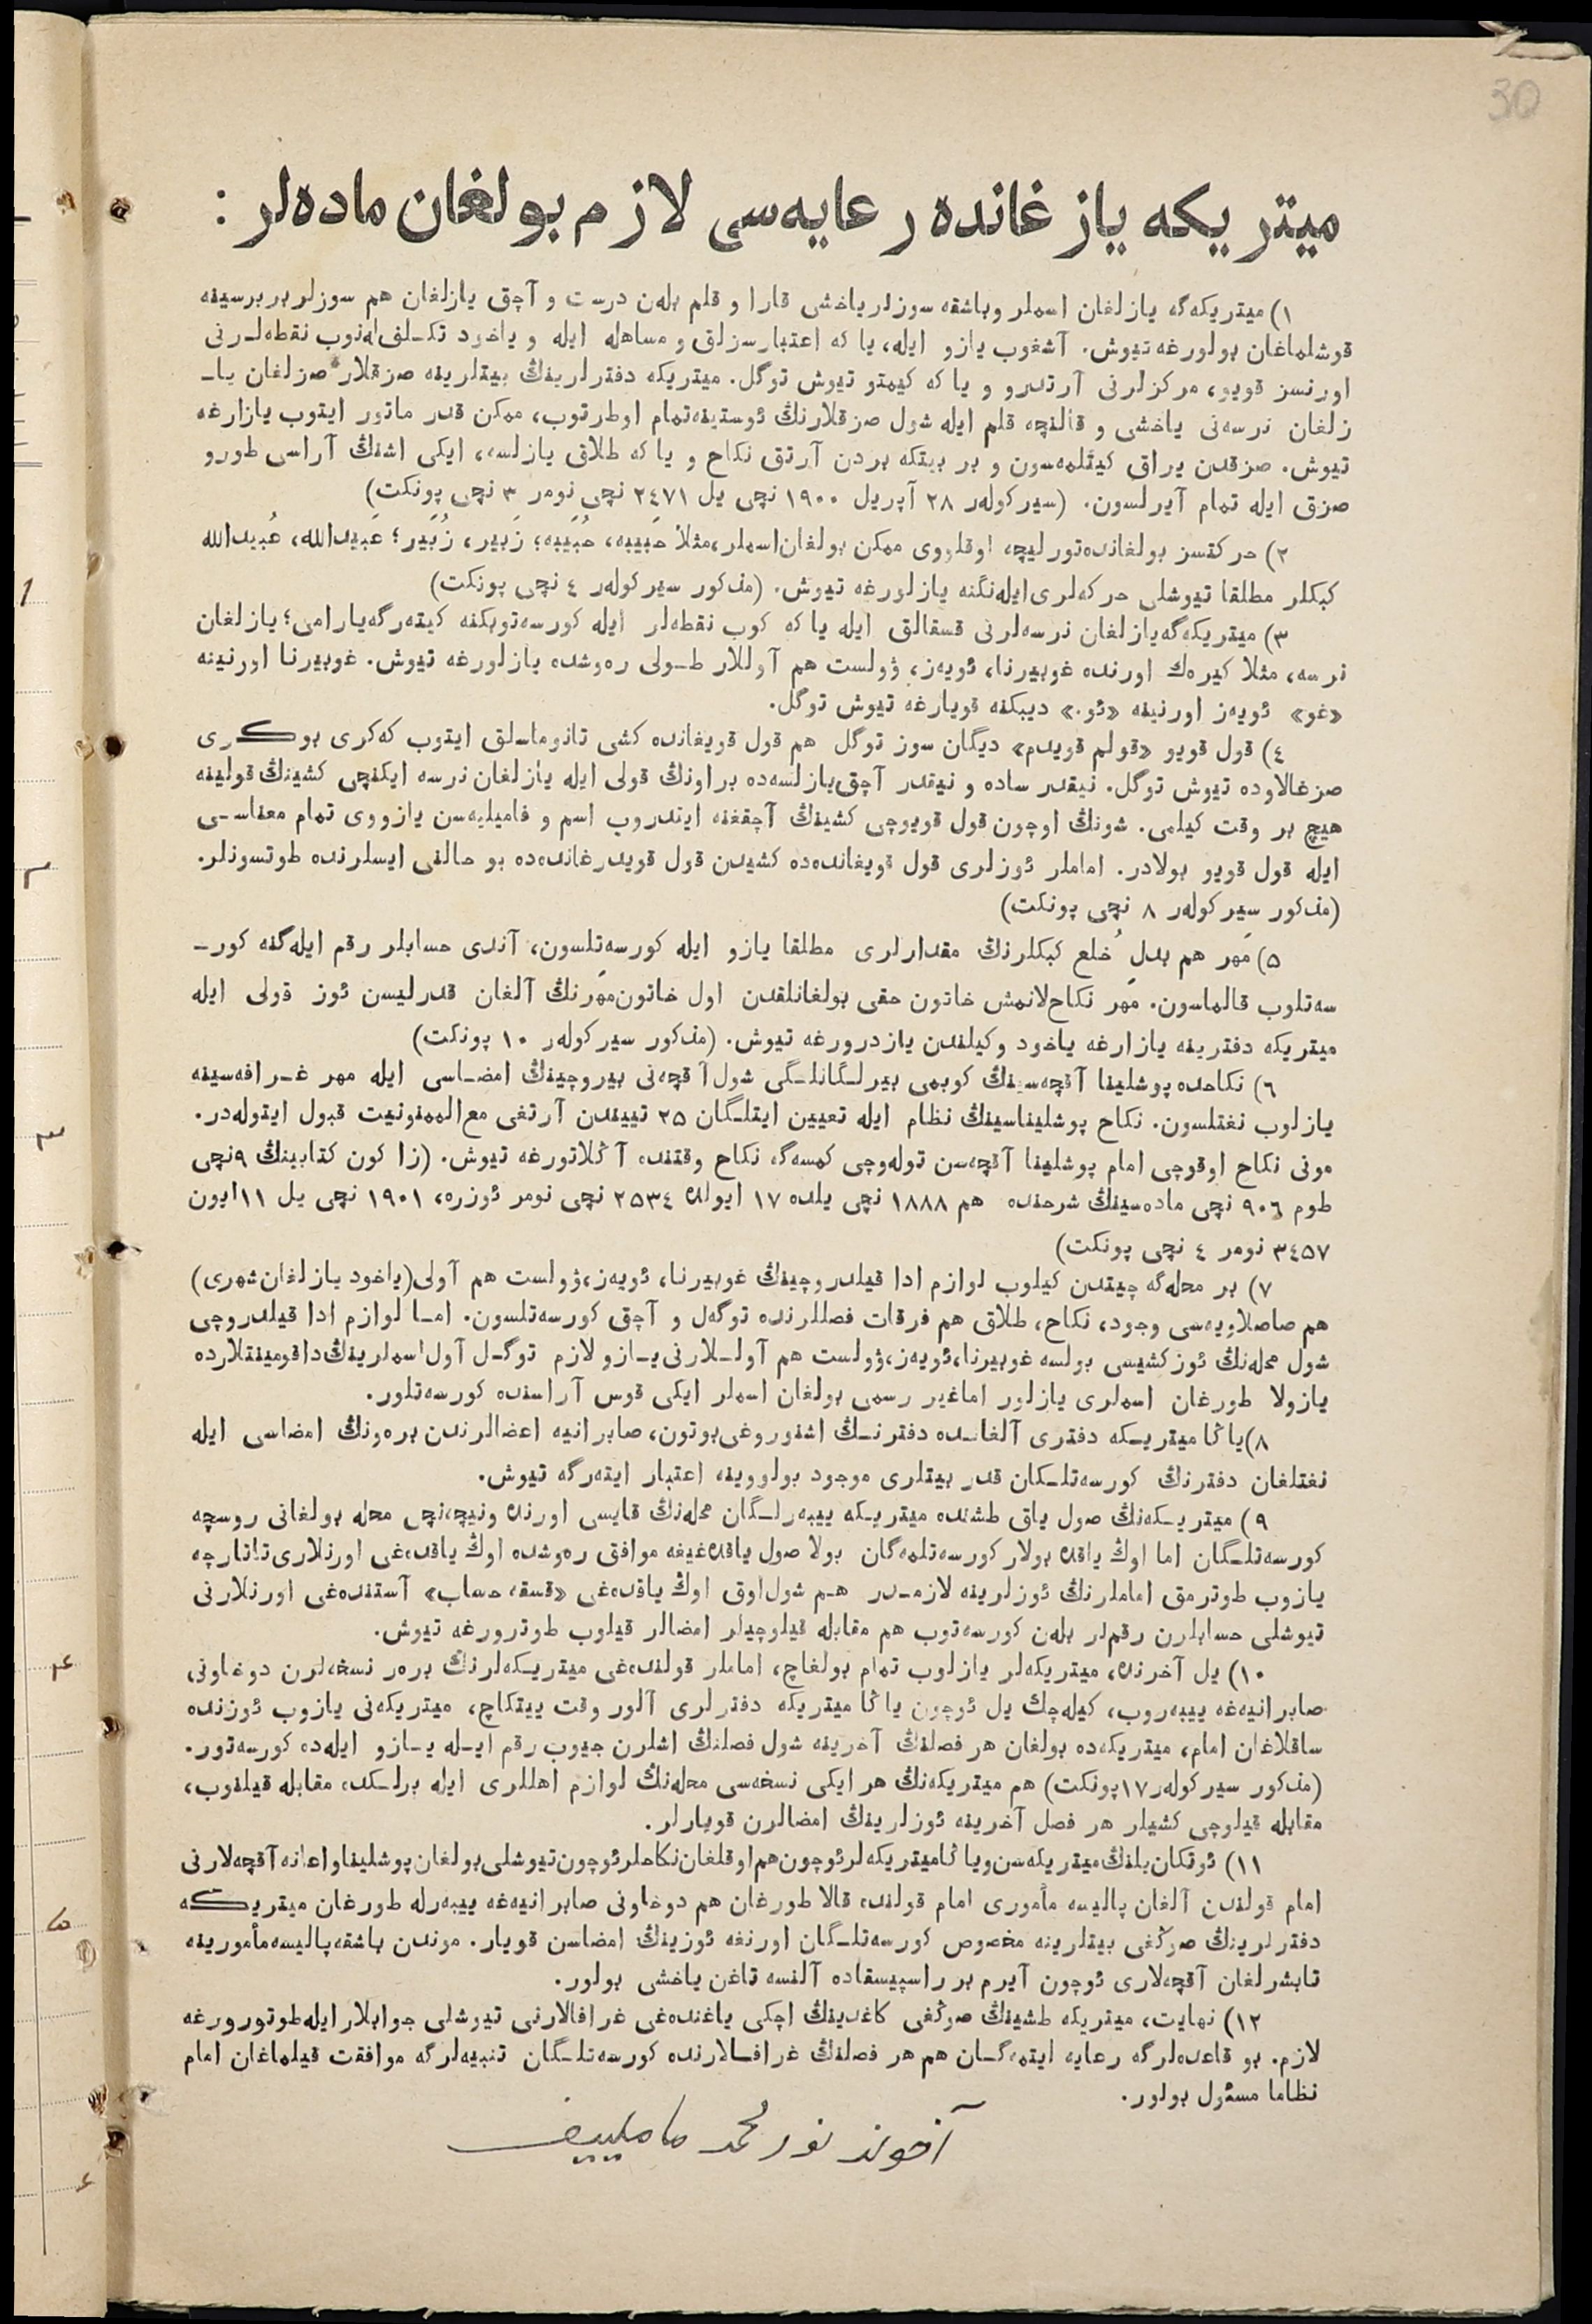 30
میتریکه یازغانده رعایه‌سی لازم بولغان ماده‌لر :
١) میتریکه‌گه یازلغان اسملر وباشقه سوزلر یاخشی قارا و قلم بله‌ن درست و آچق یازلغان هم سوزلر بربرسینه
قوشلماغان بولورغه تیوش. آشغوب یازو ایله، یا که اعتبارسزلق و مساهله ایله و یاخود تکـلف له‌نوب نقطه‌لـرنی
اورنسز قویو، مرکزلرنی آرتدرو و یا که کیمتو تیوش توگل. میتریکه دفترلرینڭ بیتلرینه صزقلار صزلغان یاـ
زلغان نرسه‌نی یاخشی و قالنچه قلم ایله شول صزقلارنڭ ئوستینه تمام اوطرتوب، ممکن قدر ماتور ایتوب یازارغه
تیوش. صزقدن یراق کیتلمه‌سون و بر بیتکه بردن آرتق نکاح و یا که طلاق یازلسه، ایکی اشنڭ آراسی طورو
صزق ایله تمام آیرلسون. (سیرکوله‌ر ٢٨ آپریل ١٩٠٠ نچی یل ٢٤٧١ نچی نومر ٣ نچی پونکت)
٢) حرکتسز بولغانده تورلیچه اوقلووی ممکن بولغان اسملر، مثلاً حَبیبه، حُبَیبه؛ زَبیر، زُبَیر؛ عَبیدالله، عُبیدالله
کبکلر مطلقا تیوشلی حرکه‌لری ایله‌نگنه یازلورغه تیوش. (مذکور سیرکوله‌ر ٤ نچی پونکت)
٣) میتریکه‌گه یازلغان نرسه‌لرنی قسقالق ایله یا که کوب نقطه‌لر ایله کورسه‌توبکنه کیته‌رگه یارامی؛ یازلغان
نرسه، مثلا کیره‌ك اورنده غوبیرنا، ئویه‌ز، ؤولست هم آوللار طـولی ره‌وشده یازلورغه تیوش. غوبیرنا اورنینه
«غو» ئویه‌ز اورنینه «ئو.» دیبکنه قویارغه تیوش توگل.
٤) قول قویو «قولم قویدم» دیگان سوز توگل هم قول قویغانده کشی تانوماسلق ایتوب که‌کری بوکـری
صزغالاوده تیوش توگل. نیقدر ساده و نیقدر آچق یازلسه‌ده براونڭ قولی ایله یازلغان نرسه ایکنچی کشینڭ قولینه
هیچ بر وقت کیلمی. شونڭ اوچون قول قویوچی کشینڭ آچقغنه ایتدروب اسم و فامیلیه‌سن یازووی تمام معناسـی
ایله قول قویو بولادر. اماملر ئوزلری قول قویغانده‌ده کشیدن قول قویدرغانده‌ده بو حالنی ایسلرنده طوتسونلر.
(مذکور سیرکوله‌ر ٨ نچی پونکت)
٥) مَهر هم بدل خُلع کبکلرنڭ مقدارلری مطلقا یازو ایله کورسه‌تلسون، آندی حسابلر رقم ایله‌گنه کورـ
سه‌تلوب قالماسون. مَهر نکاح‌لانمش خاتون حقی بولغانلقدن اول خاتون مَهرنڭ آلغان قدرلیسن ئوز قولی ایله
میتریکه دفترینه یازارغه یاخود وکیلندن یازدرورغه تیوش. (مذکور سیرکوله‌ر ١٠ پونکت)
٦) نکاحده پوشلینا آقچه‌سینڭ کوبمی بیرلـگانلـگی شول آقچه‌نی بیروچینڭ امضـاسی ایله مهر غـرافه‌سینه
یازلوب نغتلسون. نکاح پوشلیناسینڭ نظام ایله تعیین ایتلـگان ٢٥ تییندن آرتغی مع الممنونیت قبول ایتوله‌در.
مونی نکاح اوقوچی امام پوشلینا آقچه‌سن توله‌وچی کمسه‌گه نکاح وقتنده آڭلاتورغه تیوش. (زاکون کتابینڭ ٩نچی
طوم ٩٠٦ نچی ماده‌سینڭ شرحنده هم ١٨٨٨ نچی یلده ١٧ ایولده ٢٥٣٤ نچی نومر ئوزره، ١٩٠١ نچی یل ١١ایون
٣٤٥٧ نومر ٤ نچی پونکت)
٧) بر محله‌گه چیتدن کیلوب لوازم ادا قیلدروچینڭ غوبیرنا، ئویه‌ز، ؤولست هم آولی(یاخود یازلغان شهری)
هم صاصلاویه‌سی وجود، نکاح، طلاق هم فرقات فصللرنده توگه‌ل و آچق کورسه‌تلسون. امـا لوازم ادا قیلدروچی
شول محله‌نڭ ئوزکشیسی بولسه غوبیرنا، ئویه‌ز، ؤولست هم آولـلارنی یـازو لازم توگـل آول اسملرینڭ داقومینتلارده
یازولا طورغان اسملری یازلور اماغیر رسمی بولغان اسملر ایکی قوس آراسنده کورسه‌تلور.
٨) یاڭا میتریـکه دفتری آلغانـده دفترنـڭ اشنوروغی بوتون، صابرانیه اعضالرندن بره‌ونڭ امضاسی ایله
نغتلغان دفترنڭ کورسه‌تلـکان قدر بیتلری موجود بولووینه اعتبار ایته‌رگه تیوش.
٩) میتریـکه‌نڭ صول یاق طشنده میتریـکه ییبه‌رلـگان محله‌نڭ قایسی اورنده ونیچه‌نچی محله بولغانی روسچه
کورسه‌تلـگان اما اوڭ یاقده بولار کورسه‌تلمه‌گان بولا صول یاقده‌غیغه موافق ره‌وشده اوڭ یاقده‌غی اورنلاری تاتارچه
یازوب طوترمق اماملرنڭ ئوزلرینه لازمـدر هـم شول‌اوق اوڭ یاقده‌غی «قسقه حساب» آستنده‌غی اورنلارنی
تیوشلی حسابلرن رقملر بله‌ن کورسه‌توب هم مقابله قیلوچیلر امضالر قیلوب طوترورغه تیوش.
١٠) یل آخرنده، میتریکه‌لر یازلوب تمام بولغاچ، اماملر قولنده‌غی میتریـکه‌لرنڭ بره‌ر نسخه‌لرن دوخاونی
صابرانیه‌غه ییبه‌روب، کیله‌چك یل ئوچون یاڭا میتریکه دفترلری آلور وقت ییتکاچ، میتریکه‌نی یازوب ئوزنده
ساقلاغان امام، میتریکه‌ده بولغان هر فصلنڭ آخرینه شول فصلنڭ اشلرن جیوب رقم ایـله یـازو ایله‌ده کورسه‌تور.
(مذکور سیرکوله‌ر ١٧پونکت) هم میتریکه‌نڭ هر ایکی نسخه‌سی محله‌نڭ لوازم اهللری ایله برلـکده مقابله قیلنوب،
مقابله قیلوچی کشیلر هر فصل آخرینه ئوزلرینڭ امضالرن قویارلر.
١١) ئوتکان یلنڭ میتریکه‌سن ویاڭا میتریکه‌لر ئوچون هم اوقلغان نکاحلر ئوچون تیوشلی بولغان پوشلینا و اعانه آقچه‌لارنی
امام قولندن آلغان پالیسه مأموری امام قولنده قالا طورغان هم دوخاونی صابرانیه‌غه ییبه‌رله طورغان میتریـکه
دفترلرینڭ صوڭغی بیتلرینه مخصوص کورسه‌تلـگان اورنغه ئوزینڭ امضاسن قویار. موندن باشقه پالیسه مأمورینه
تابشرلغان آقچه‌لاری ئوچون آیرم بر راسپیسقاده آلنسه تاغن یاخشی بولور.
١٢) نهایت، میتریکه طشینڭ صوڭغی کاغدینڭ اچکی یاغنده‌غی غرافالارنی تیوشلی جوابلار ایله طوتورورغه
لازم. بو قاعده‌لرگه رعایه ایتمه‌گـان هم هر فصلنڭ غرافـالارنده کورسه‌تلـگان تنبیه‌لرگه موافقت قیلماغان امام
نظاما مسئول بولور.
آخوند نورمحمد مامليیف